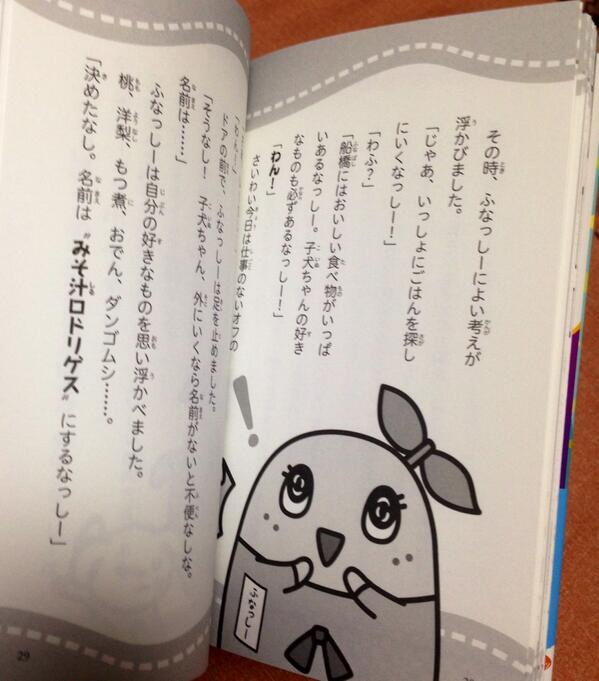 その時、ふなっしーによい考えが
浮かびました。
「じゃあ、いっしょにごはんを探し
にいくなっしー！」
「わふ？」
「船橋にはおいしい食べ物がいっぱ
いあるなっしー。子犬ちゃんの好き
なものも必ずあるなっしー！」
「わん！」
さいわい今日は仕事のないオフの
ふなっしー
ドアの前で、ふなっしーは足を止めました。
「そうなし！　子犬ちゃん、外にいくなら名前がないと不便なしな。
名前は……」
ふなっしーは自分の好きなものを思い浮かべました。
桃、洋梨、もつ煮、おでん、ダンゴムシ……。
「決めたなし。名前は〝みそ汁ロドリゲス〟にするなっしー」
29